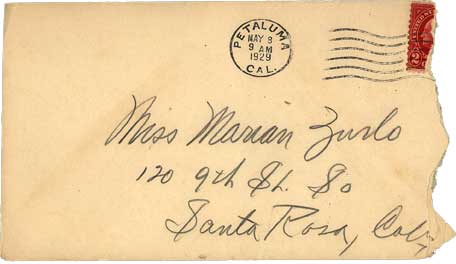 PETALUMA
MAY 8
9 AM
1929
CAL.
Miss Marian Zurlo
120 9th St. So
Santa Rosa, Calif